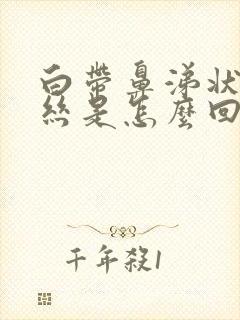 白帶鼻涕狀
絲是怎麼回
千年殺1